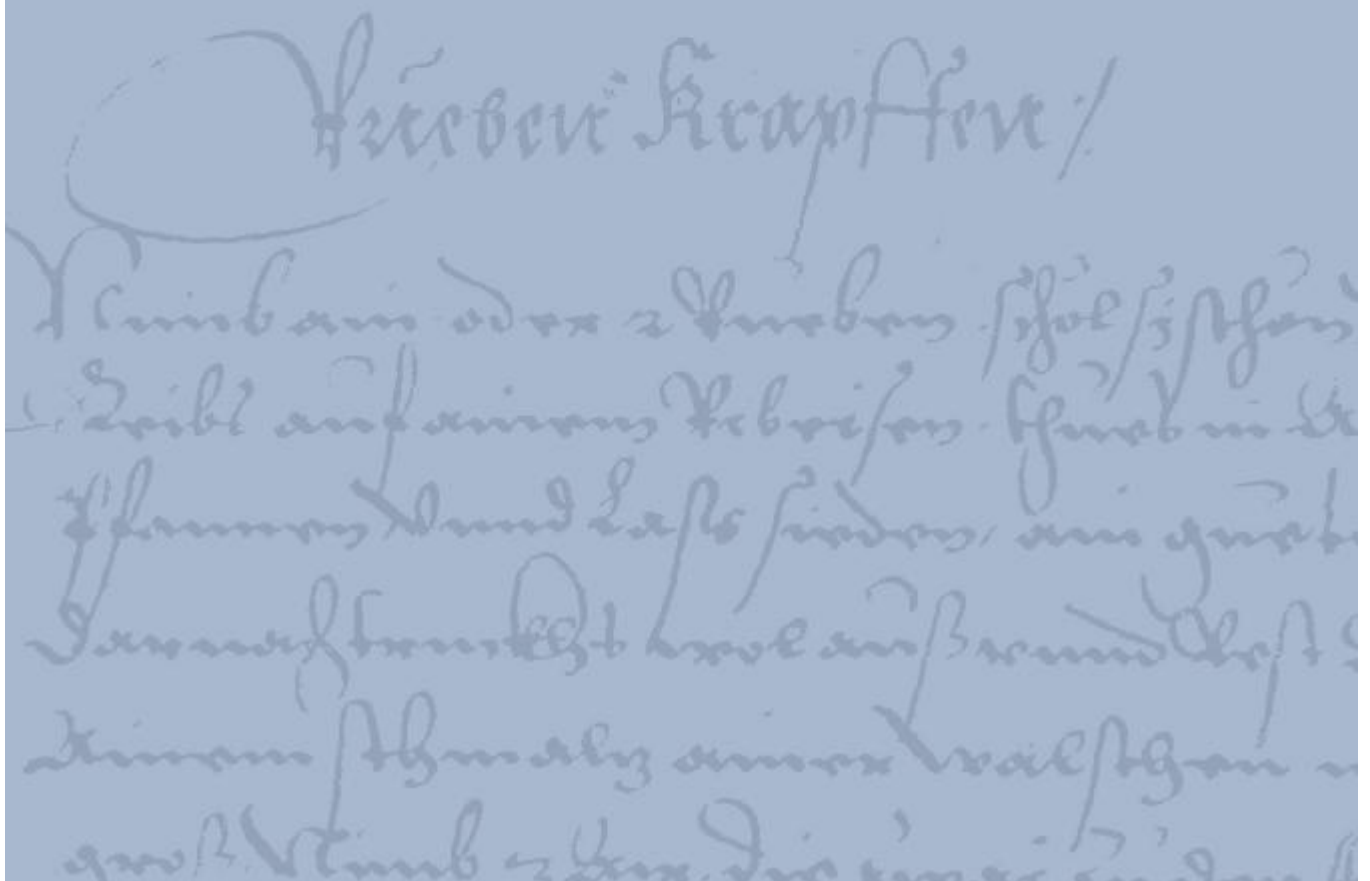 Rueben Krapffen /
Nimb ain oder 2 Rueben schöl sÿ schön
Reibs auf ainem Rebeisen thues in A
Pfannen Vnnd Lass sieden, ain guete
Darnach wol auß vnnd Rest
Ainem schmalz ainer walschen
groß Nimb 2 Air, die